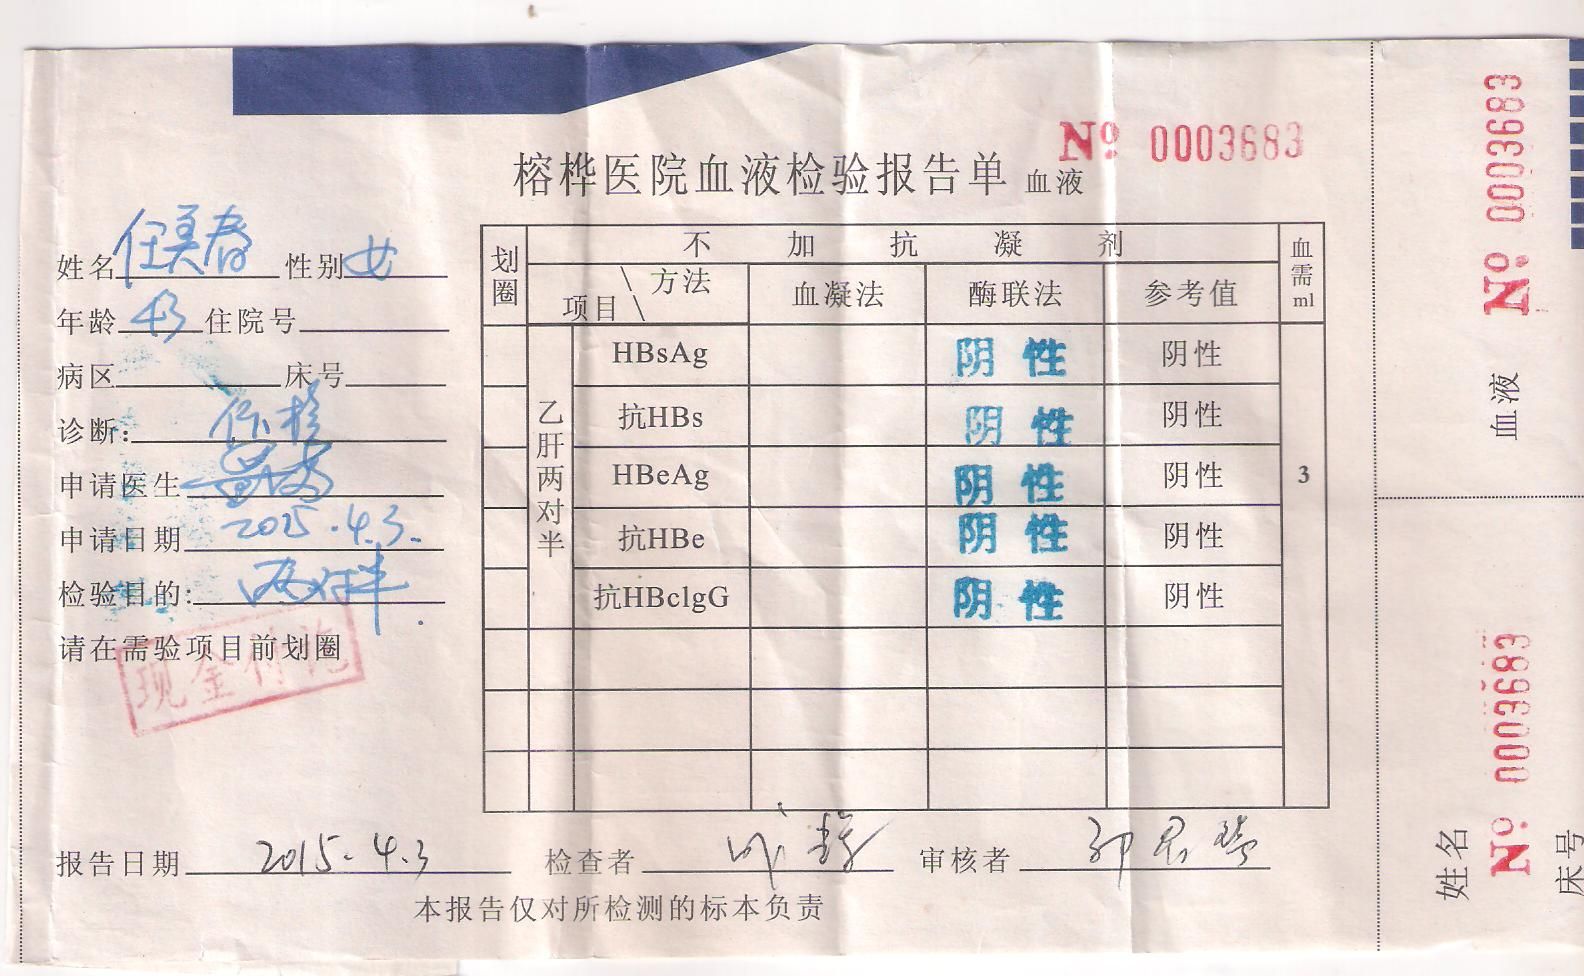 榕桦医院血液检验报告单 血液
№ 0003683
姓名 任美春 性别 女
年龄 43 住院号
病区 床号
诊断: 体检
申请医生
申请日期 2015.4.3.
检验目的: 两对半.
请在需验项目前划圈
现金付讫
划圈 不加抗凝剂 血需ml
方法 项目 血凝法 酶联法 参考值
乙肝两对半
HBsAg 阴性 阴性
抗HBs 阴性 阴性
HBeAg 阴性 阴性
3
抗HBe 阴性 阴性
抗HBclgG 阴性 阴性
报告日期 2015.4.3 检查者 审核者
本报告仅对所检测的标本负责
№ 0003683
血液
№ 0003683
姓名
床号